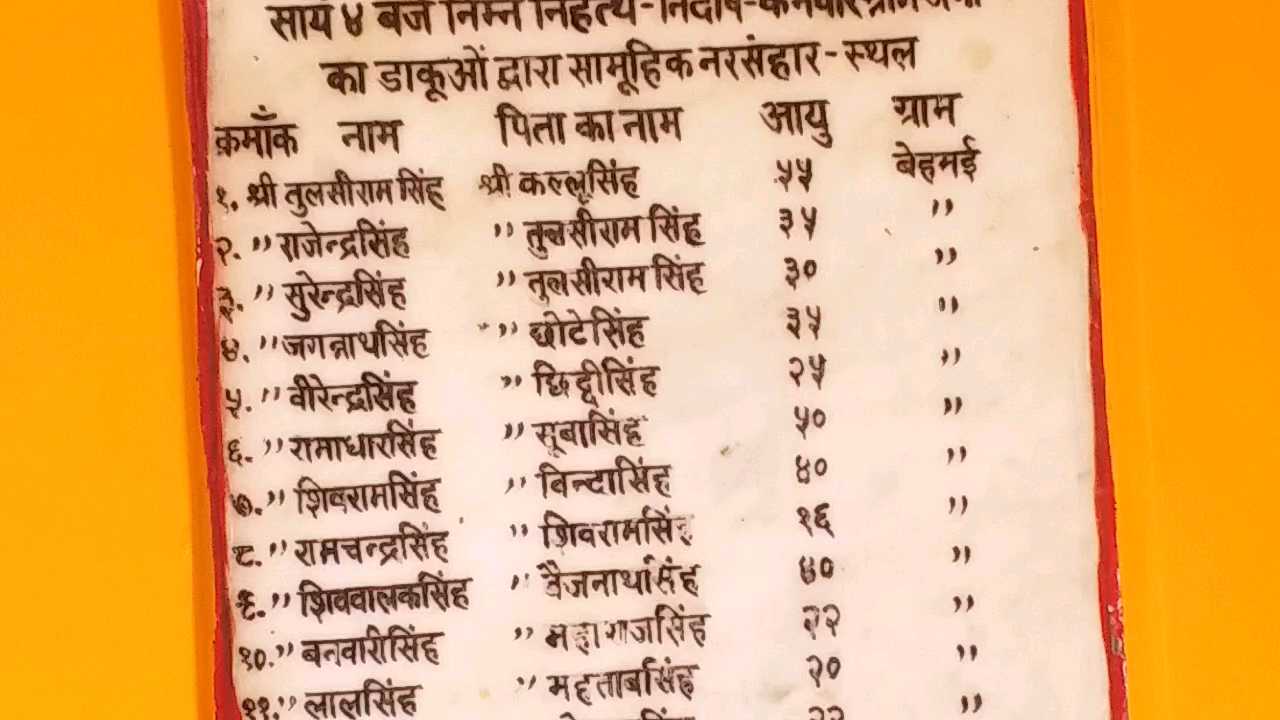 सायं ४ बजे निम्न निहत्थे-निर्दोष-कर्मवीर
का डाकूओं द्वारा सामूहिक नरसंहार-स्थल
क्रमाँक नाम पिता का नाम आयु ग्राम
१. श्री तुलसीराम सिंह श्री कल्लूसिंह ५५ बेहमई
२. " राजेन्द्रसिंह " तुलसीराम सिंह ३५ "
३. " सुरेन्द्रसिंह " तुलसीराम सिंह ३० "
४. " जगन्नाथसिंह " छोटेसिंह ३५ "
५. " वीरेन्द्रसिंह " छिद्दीसिंह २५ "
६. " रामाधारसिंह " सूबासिंह ५० "
७. " शिवरामसिंह " विन्दासिंह ४० "
८. " रामचन्द्रसिंह " शिवरामसिंह १६ "
९. " शिववालकसिंह " वैजनाथसिंह ४० "
१०. " बनवारीसिंह " महाराजसिंह २२ "
११. " लालसिंह " महताबसिंह २० "
२२ "